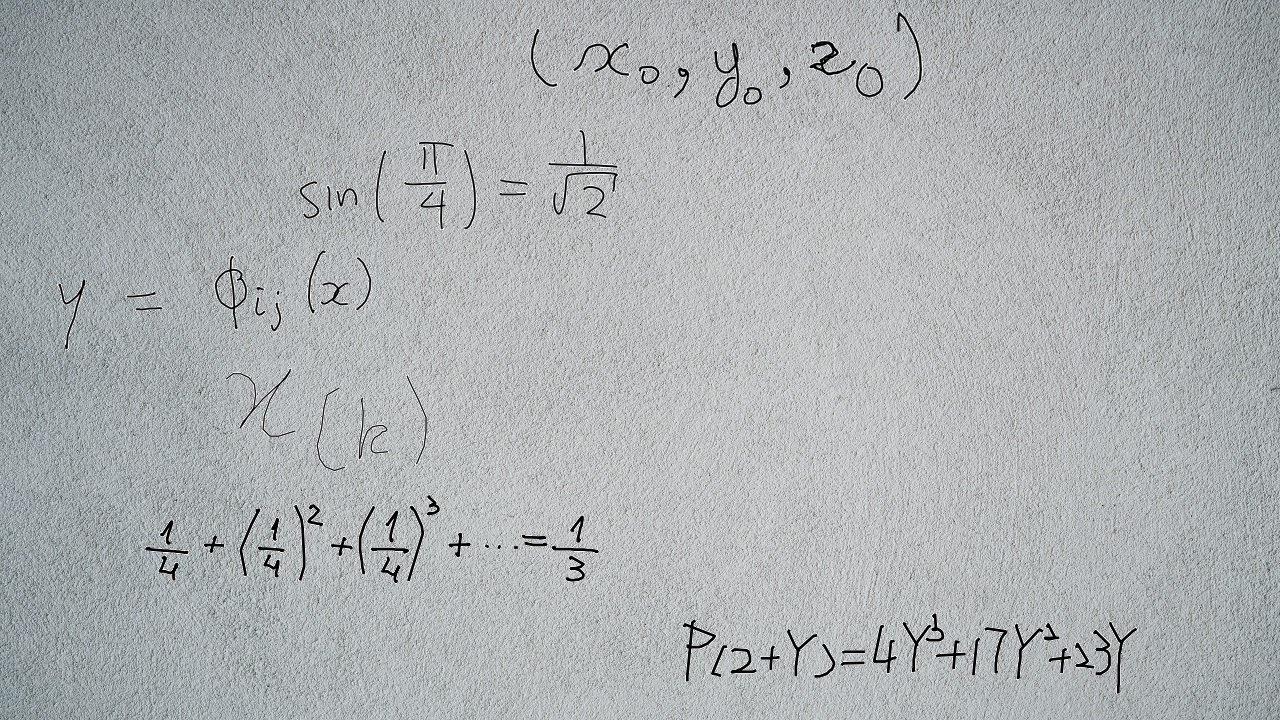 (x₀, y₀, z₀)
sin(π/4) = 1/√2
y = ϕᵢⱼ(x)
x(k)
1/4 + (1/4)² + (1/4)³ + ... = 1/3
P(2+Y)=4Y³+17Y²+23Y